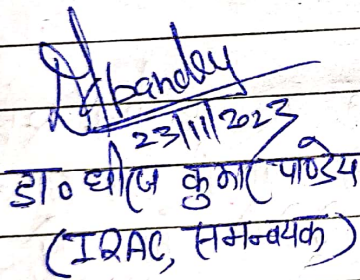 Dkpandey
23/11/2023
डा० धीरज कुमार पाण्डेय
(IQAC, समन्वयक)